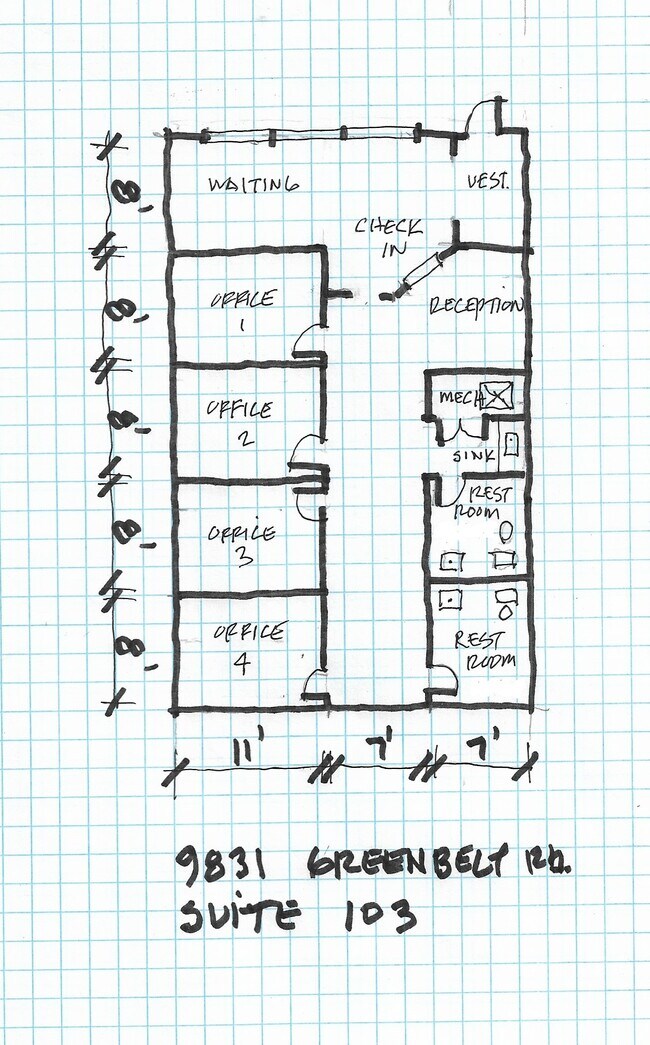 WAITING
VEST.
CHECK
IN
8'
OFFICE
1
RECEPTION
8'
OFFICE
2
MECH
8'
SINK
REST
ROOM
OFFICE
3
8'
OFFICE
4
REST
ROOM
8'
11'
7'
7'
9831 GREENBELT RD.
SUITE 103